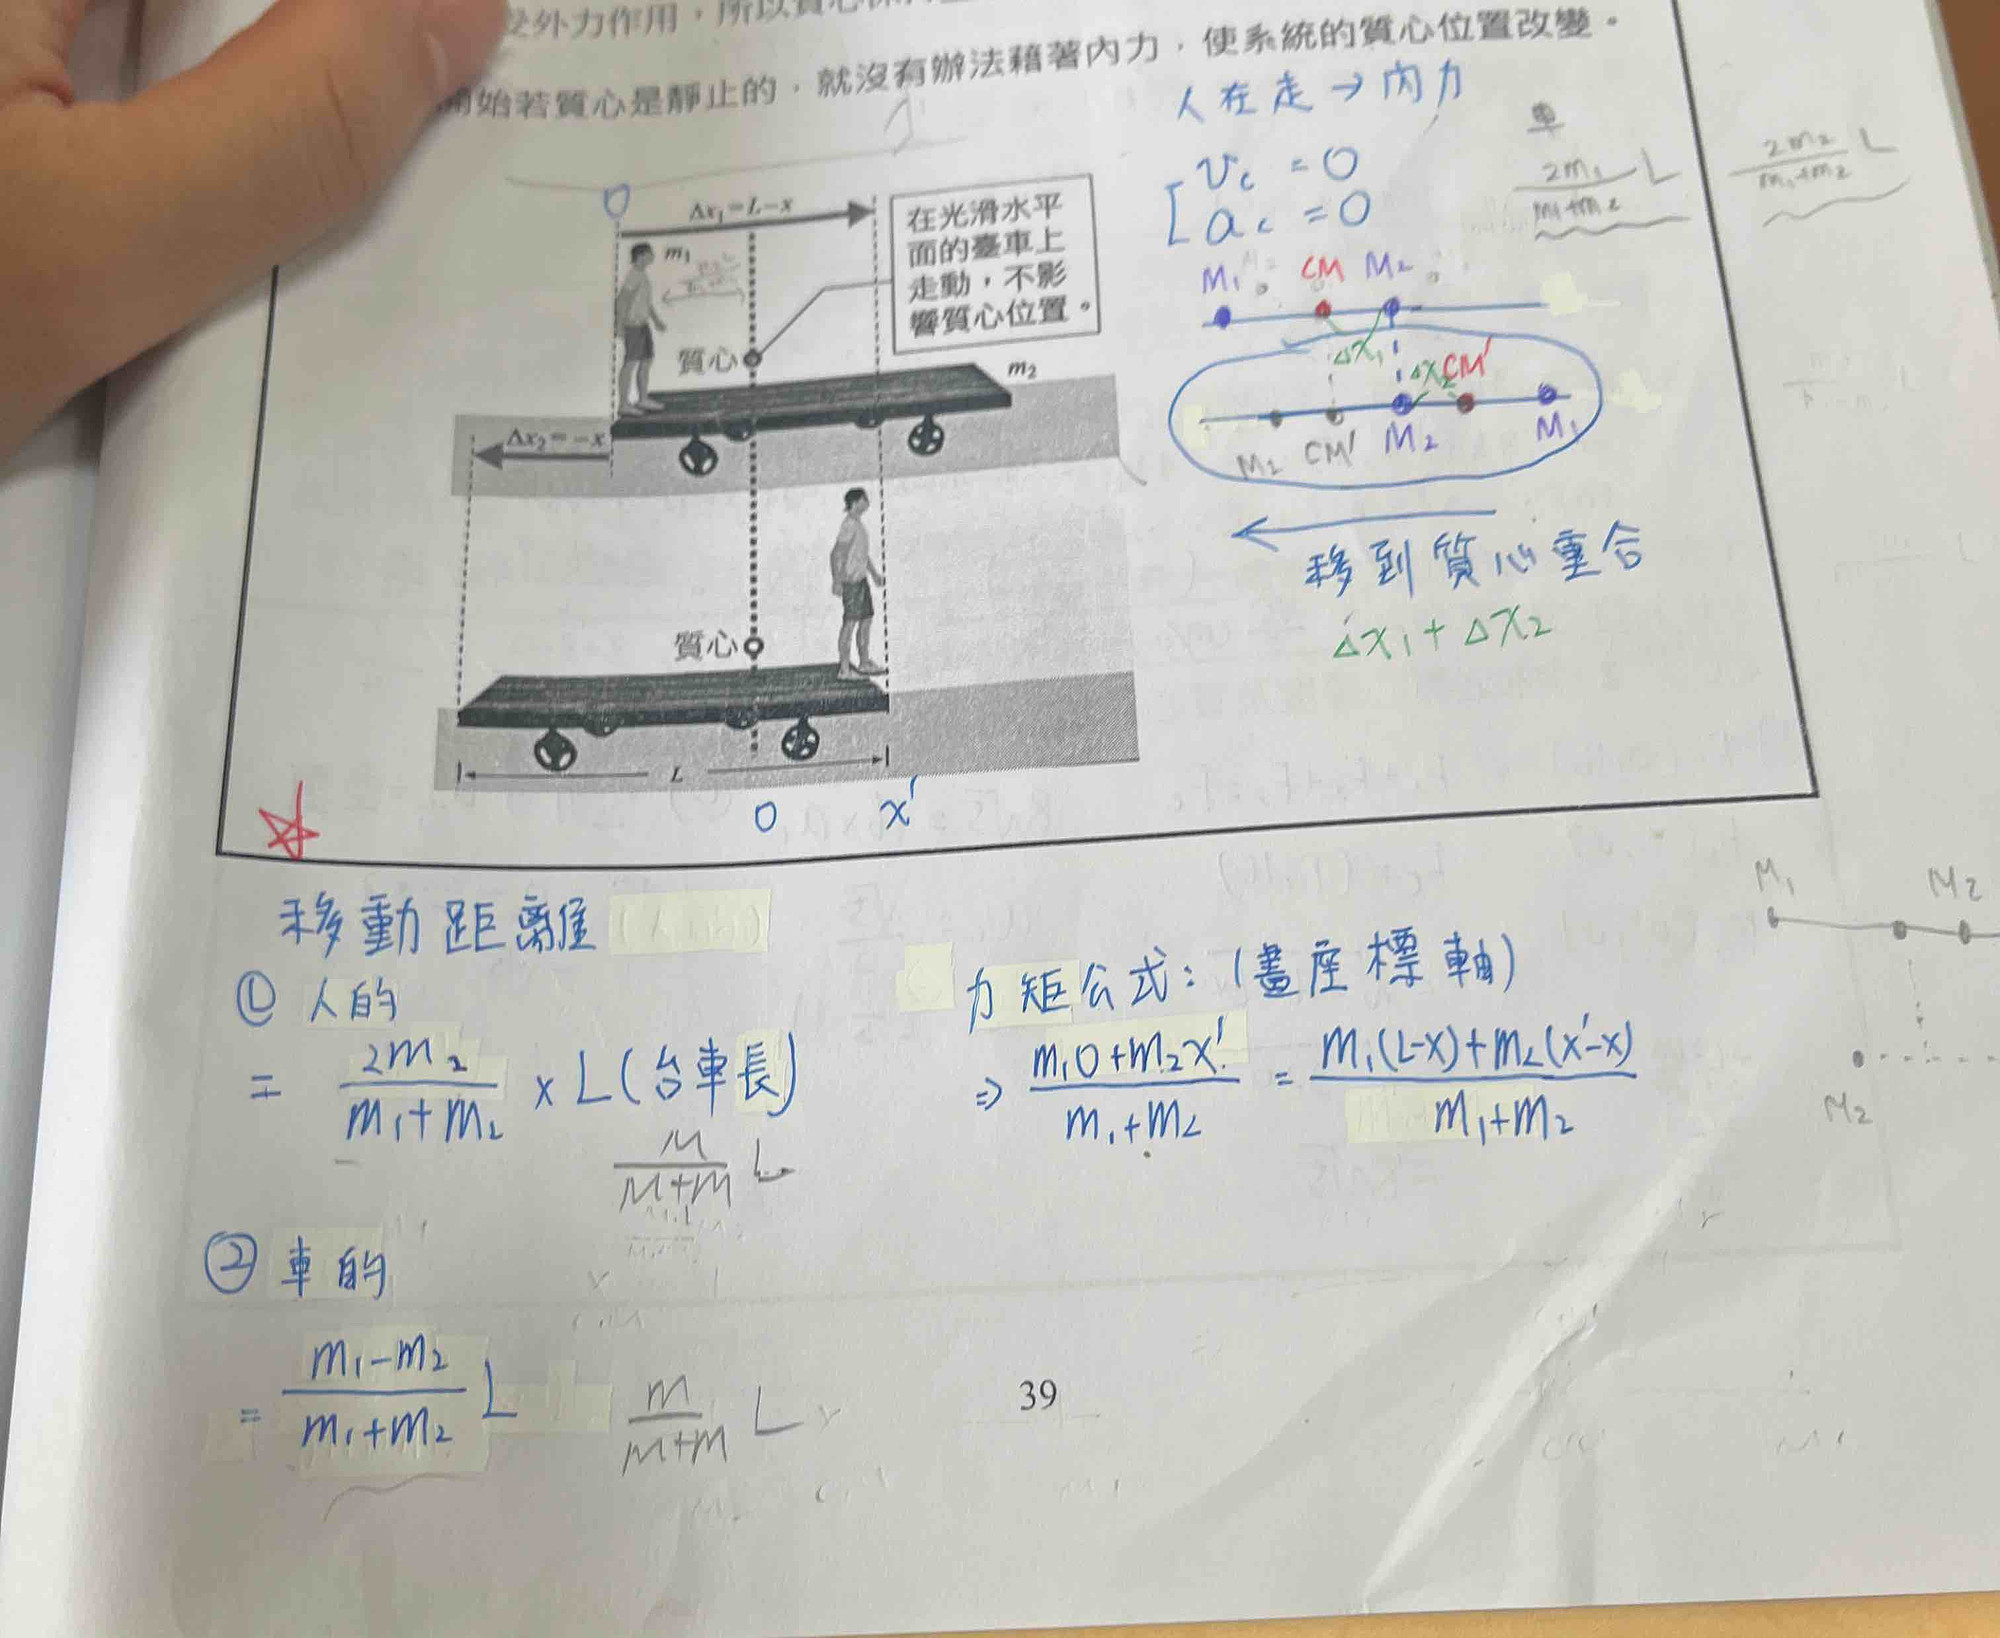 受外力作用，所以質心
開始若質心是靜止的，就沒有辦法藉著內力，使系統的質心位置改變。
人在走→內力
車
2m₁/(m₁+m₂) L
2m₂/(m₁+m₂) L
v_c = 0
a_c = 0
0
Δx₁=L−x
m₁
在光滑水平
面的臺車上
走動，不影
響質心位置。
質心
m₂
Δx₂=−x
M₁ CM M₂
Δx₁ Δx₂ CM'
M₂ CM' M₂ M₁
移到質心重合
Δx₁+Δx₂
質心
L
0 x'
M₁ M₂
M₂
移動距離
① 人的
= 2m₂/(m₁+m₂) × L(台車長)
M/(M+m) L
力矩公式：(畫座標軸)
⇒ (m₁0+m₂x')/(m₁+m₂) = (m₁(L-x)+m₂(x'-x))/(m₁+m₂)
② 車的
= (m₁-m₂)/(m₁+m₂) L
m/(M+m) L
39